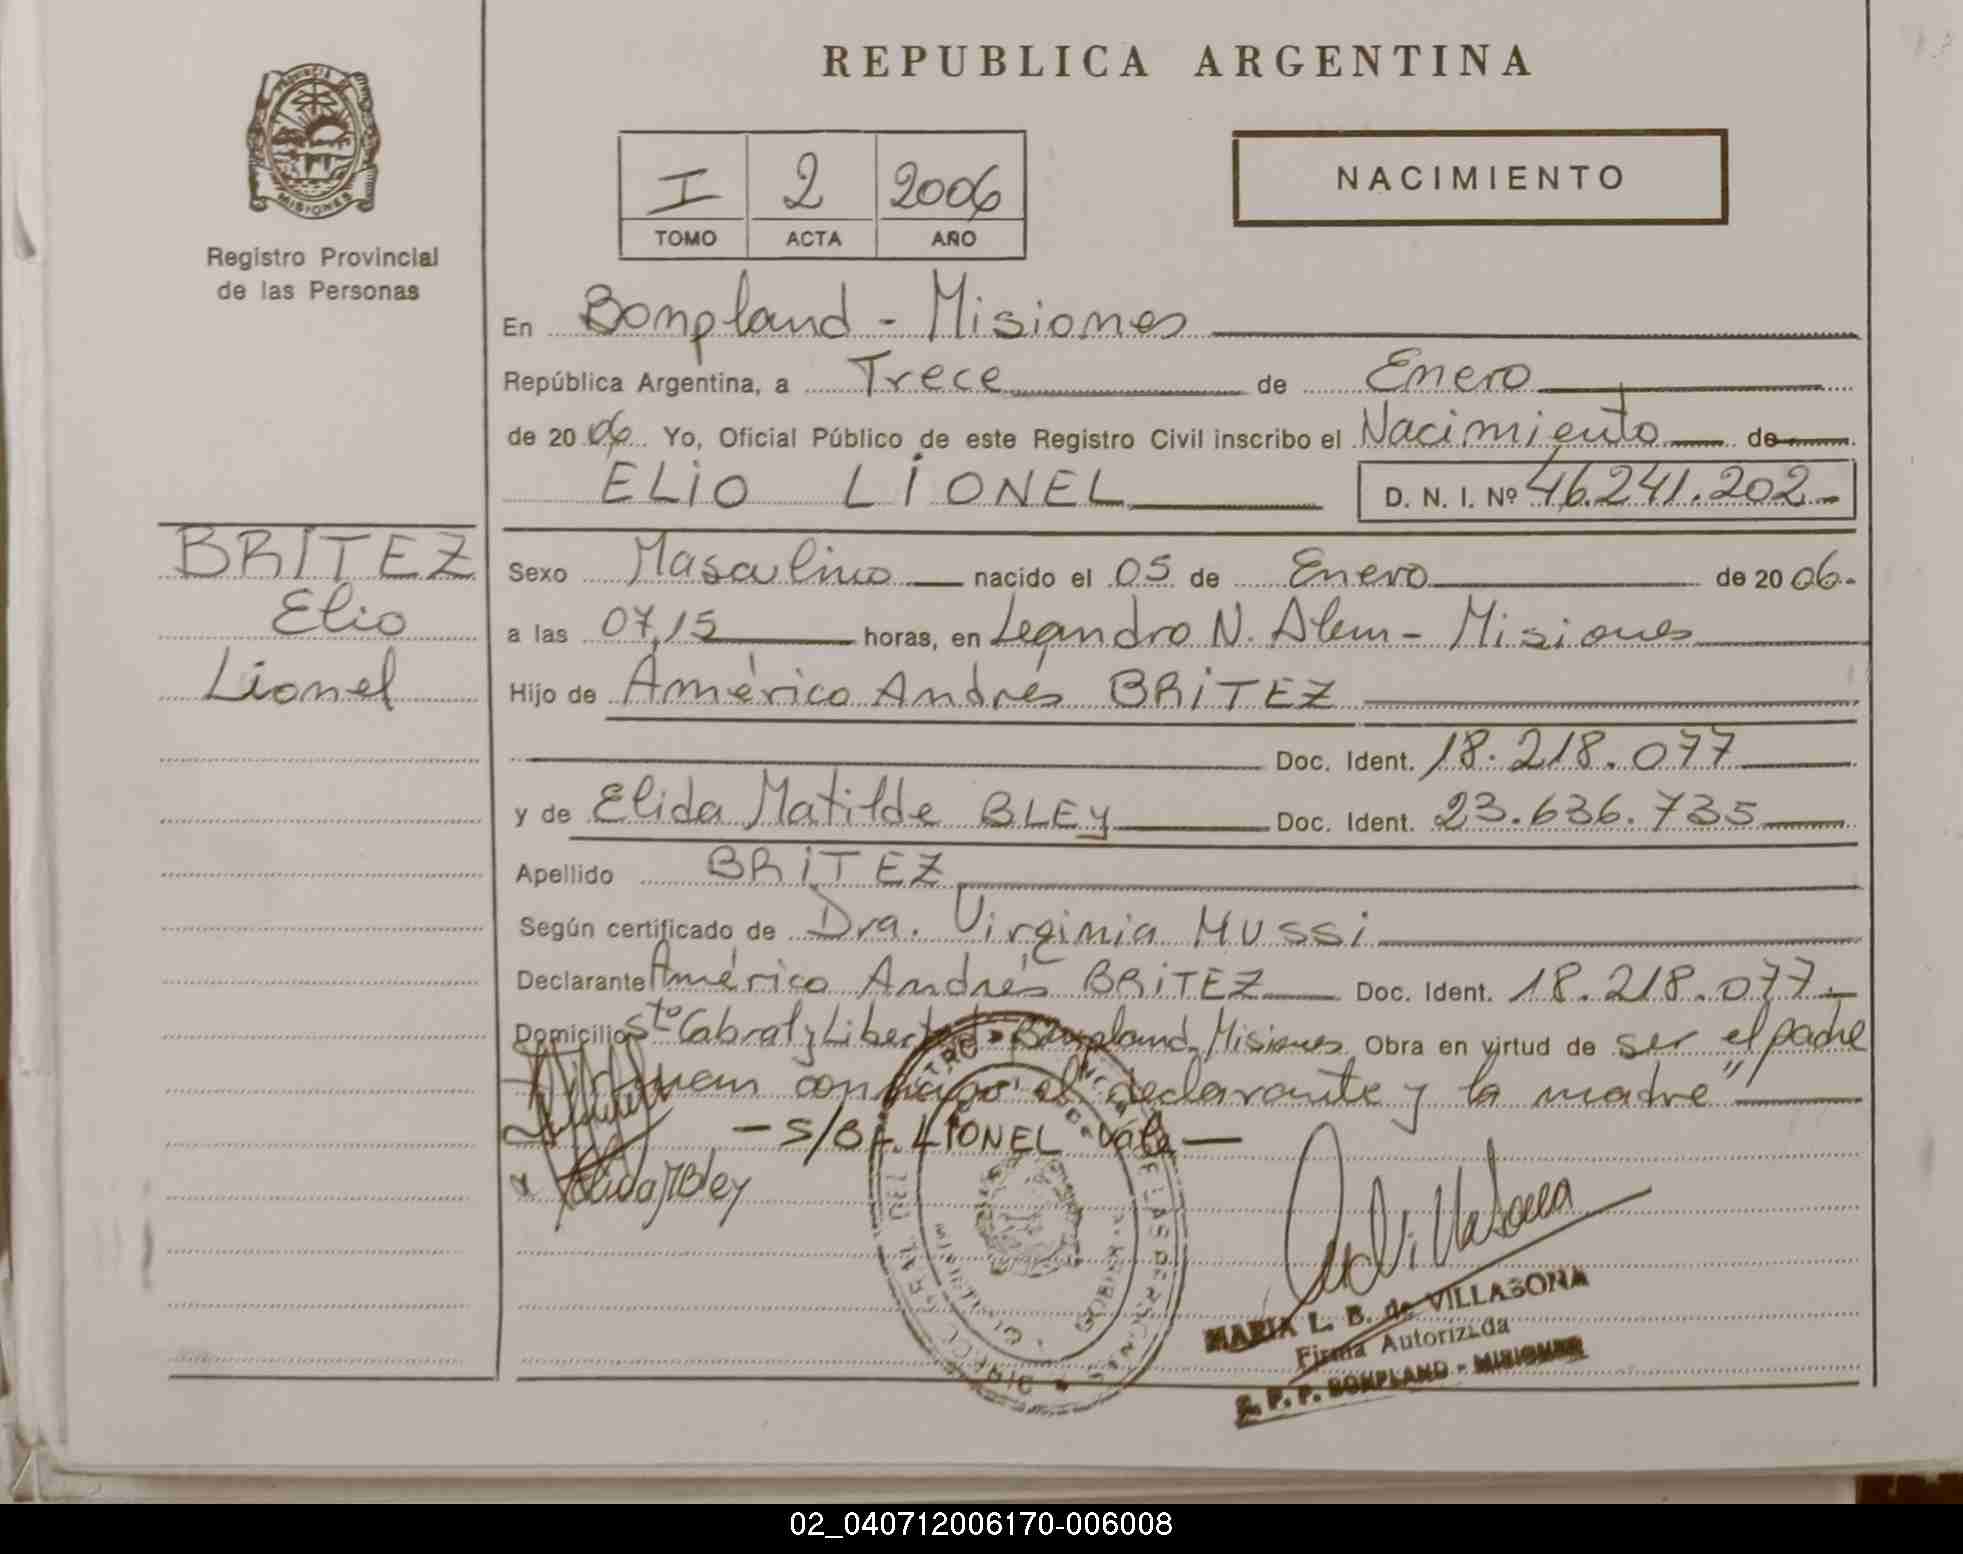 REPUBLICA ARGENTINA
PROVINCIA DE
MISIONES
Registro Provincial
de las Personas
I 2 2006
TOMO ACTA AÑO
NACIMIENTO
En Bonpland - Misiones
República Argentina, a Trece de Enero
de 2006 Yo, Oficial Público de este Registro Civil inscribo el Nacimiento de
ELiO LiONEL D. N. I. Nº 46.241.202.-
BRITEZ
Elio
Lionel
Sexo Masculino nacido el 05 de Enero de 2006.-
a las 07,15 horas, en Leandro N. Alem - Misiones
Hijo de Américo Andrés BRiTEZ
Doc. Ident. 18.218.077
y de Elida Matilde BLEy Doc. Ident. 23.636.735
Apellido BRiTEZ
Según certificado de Dra. Virginia MUSSi
Declarante Américo Andrés BRiTEZ Doc. Ident. 18.218.077.-
Domicilio Sto Cabral y Libertad - Bonpland, Misiones Obra en virtud de ser "el padre
Firman conmigo el declarante y la madre"
- S/B.: LIONEL Vale -
Elida M Bley
MARIA L. B. de VILLASONA
Firma Autorizada
R. P. P. BONPLAND - MISIONES
02_040712006170-006008